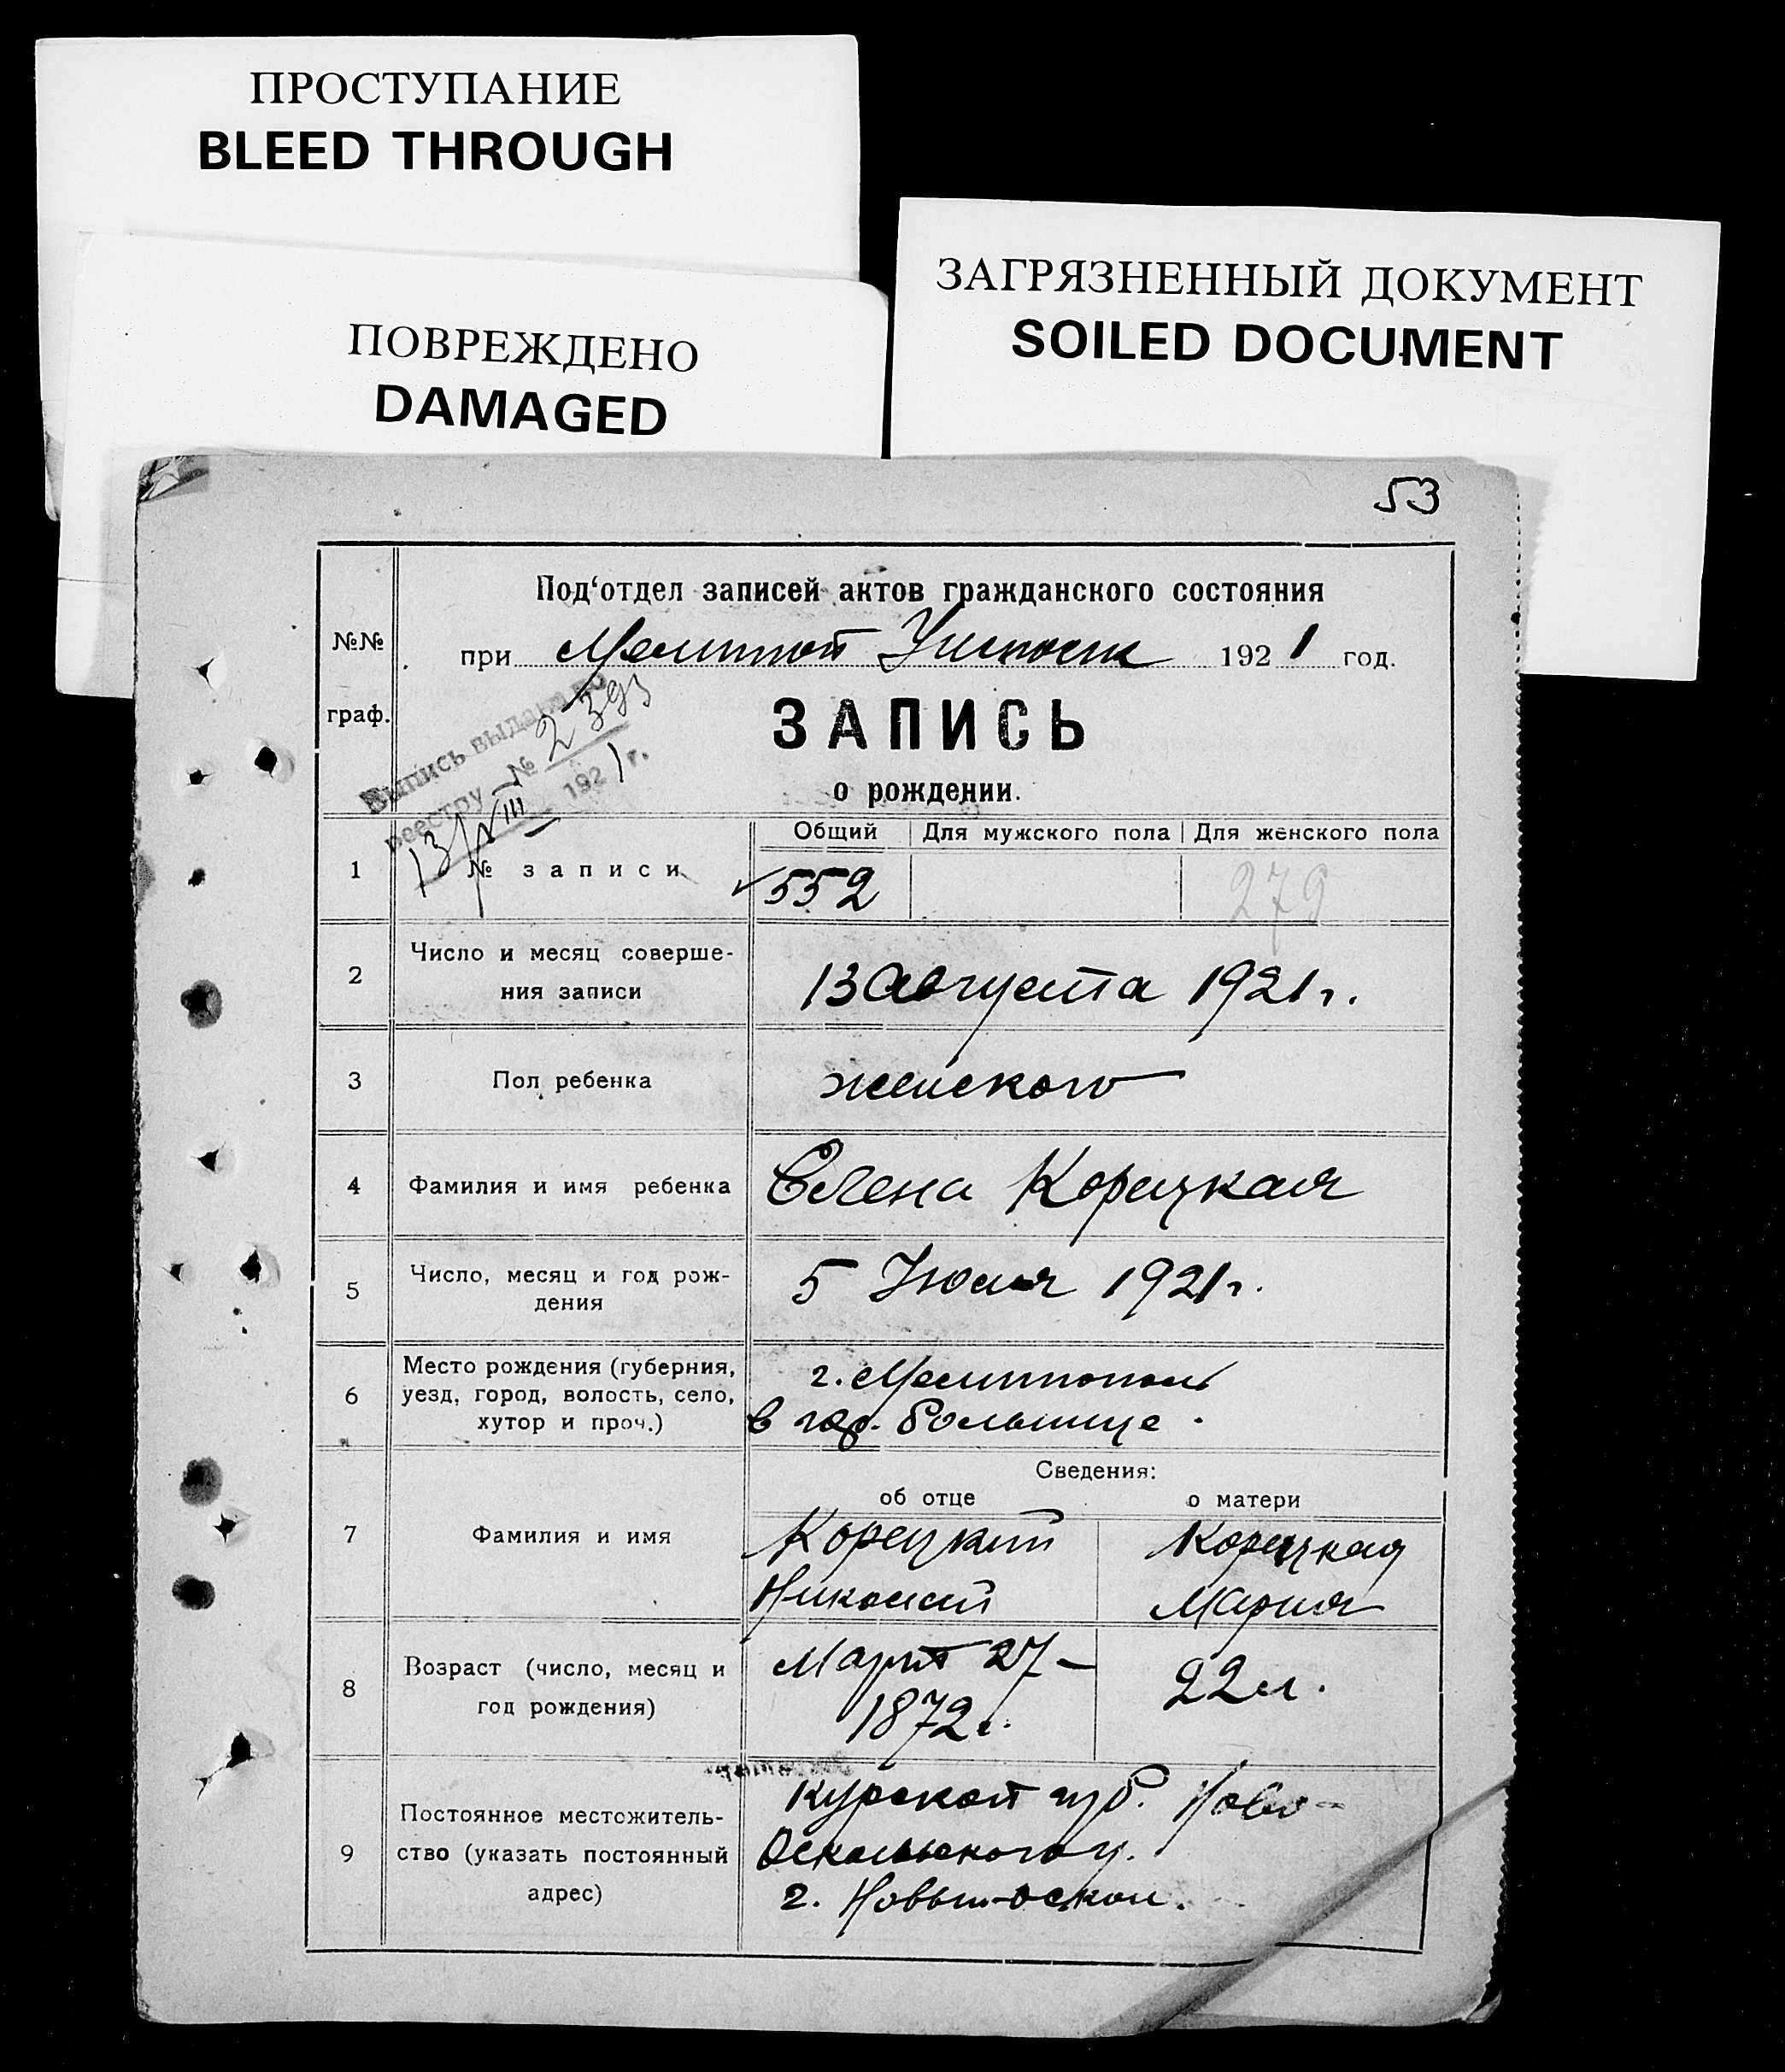 ПРОСТУПАНИЕ
BLEED THROUGH
ПОВРЕЖДЕНО
DAMAGED
ЗАГРЯЗНЕННЫЙ ДОКУМЕНТ
SOILED DOCUMENT
53
№№ граф.
Под‘отдел записей актов гражданского состояния
при 1921 год.
Выпись выдана по
реестру № 2393
13/VIII 1921 г.
ЗАПИСЬ
о рождении.
Общий Для мужского пола Для женского пола
1 № записи 552 279
2 Число и месяц соверше-
ния записи
13 Августа 1921 г.
3 Пол ребенка женского
4 Фамилия и имя ребенка Елена Корецкая
5 Число, месяц и год рож-
дения
5 Июля 1921 г.
6 Место рождения (губерния,
уезд, город, волость, село,
хутор и проч.)
г. Мелитополь
в гор. больнице.
Сведения:
об отце о матери
7 Фамилия и имя
Корецкий Корецкая
Николай Мария
8 Возраст (число, месяц и
год рождения)
Март 27 – 22 л.
1872 г.
9 Постоянное местожитель-
ство (указать постоянный
адрес)
Курской губ. Ново-
Оскольского у.
г. Новый-Оскол.